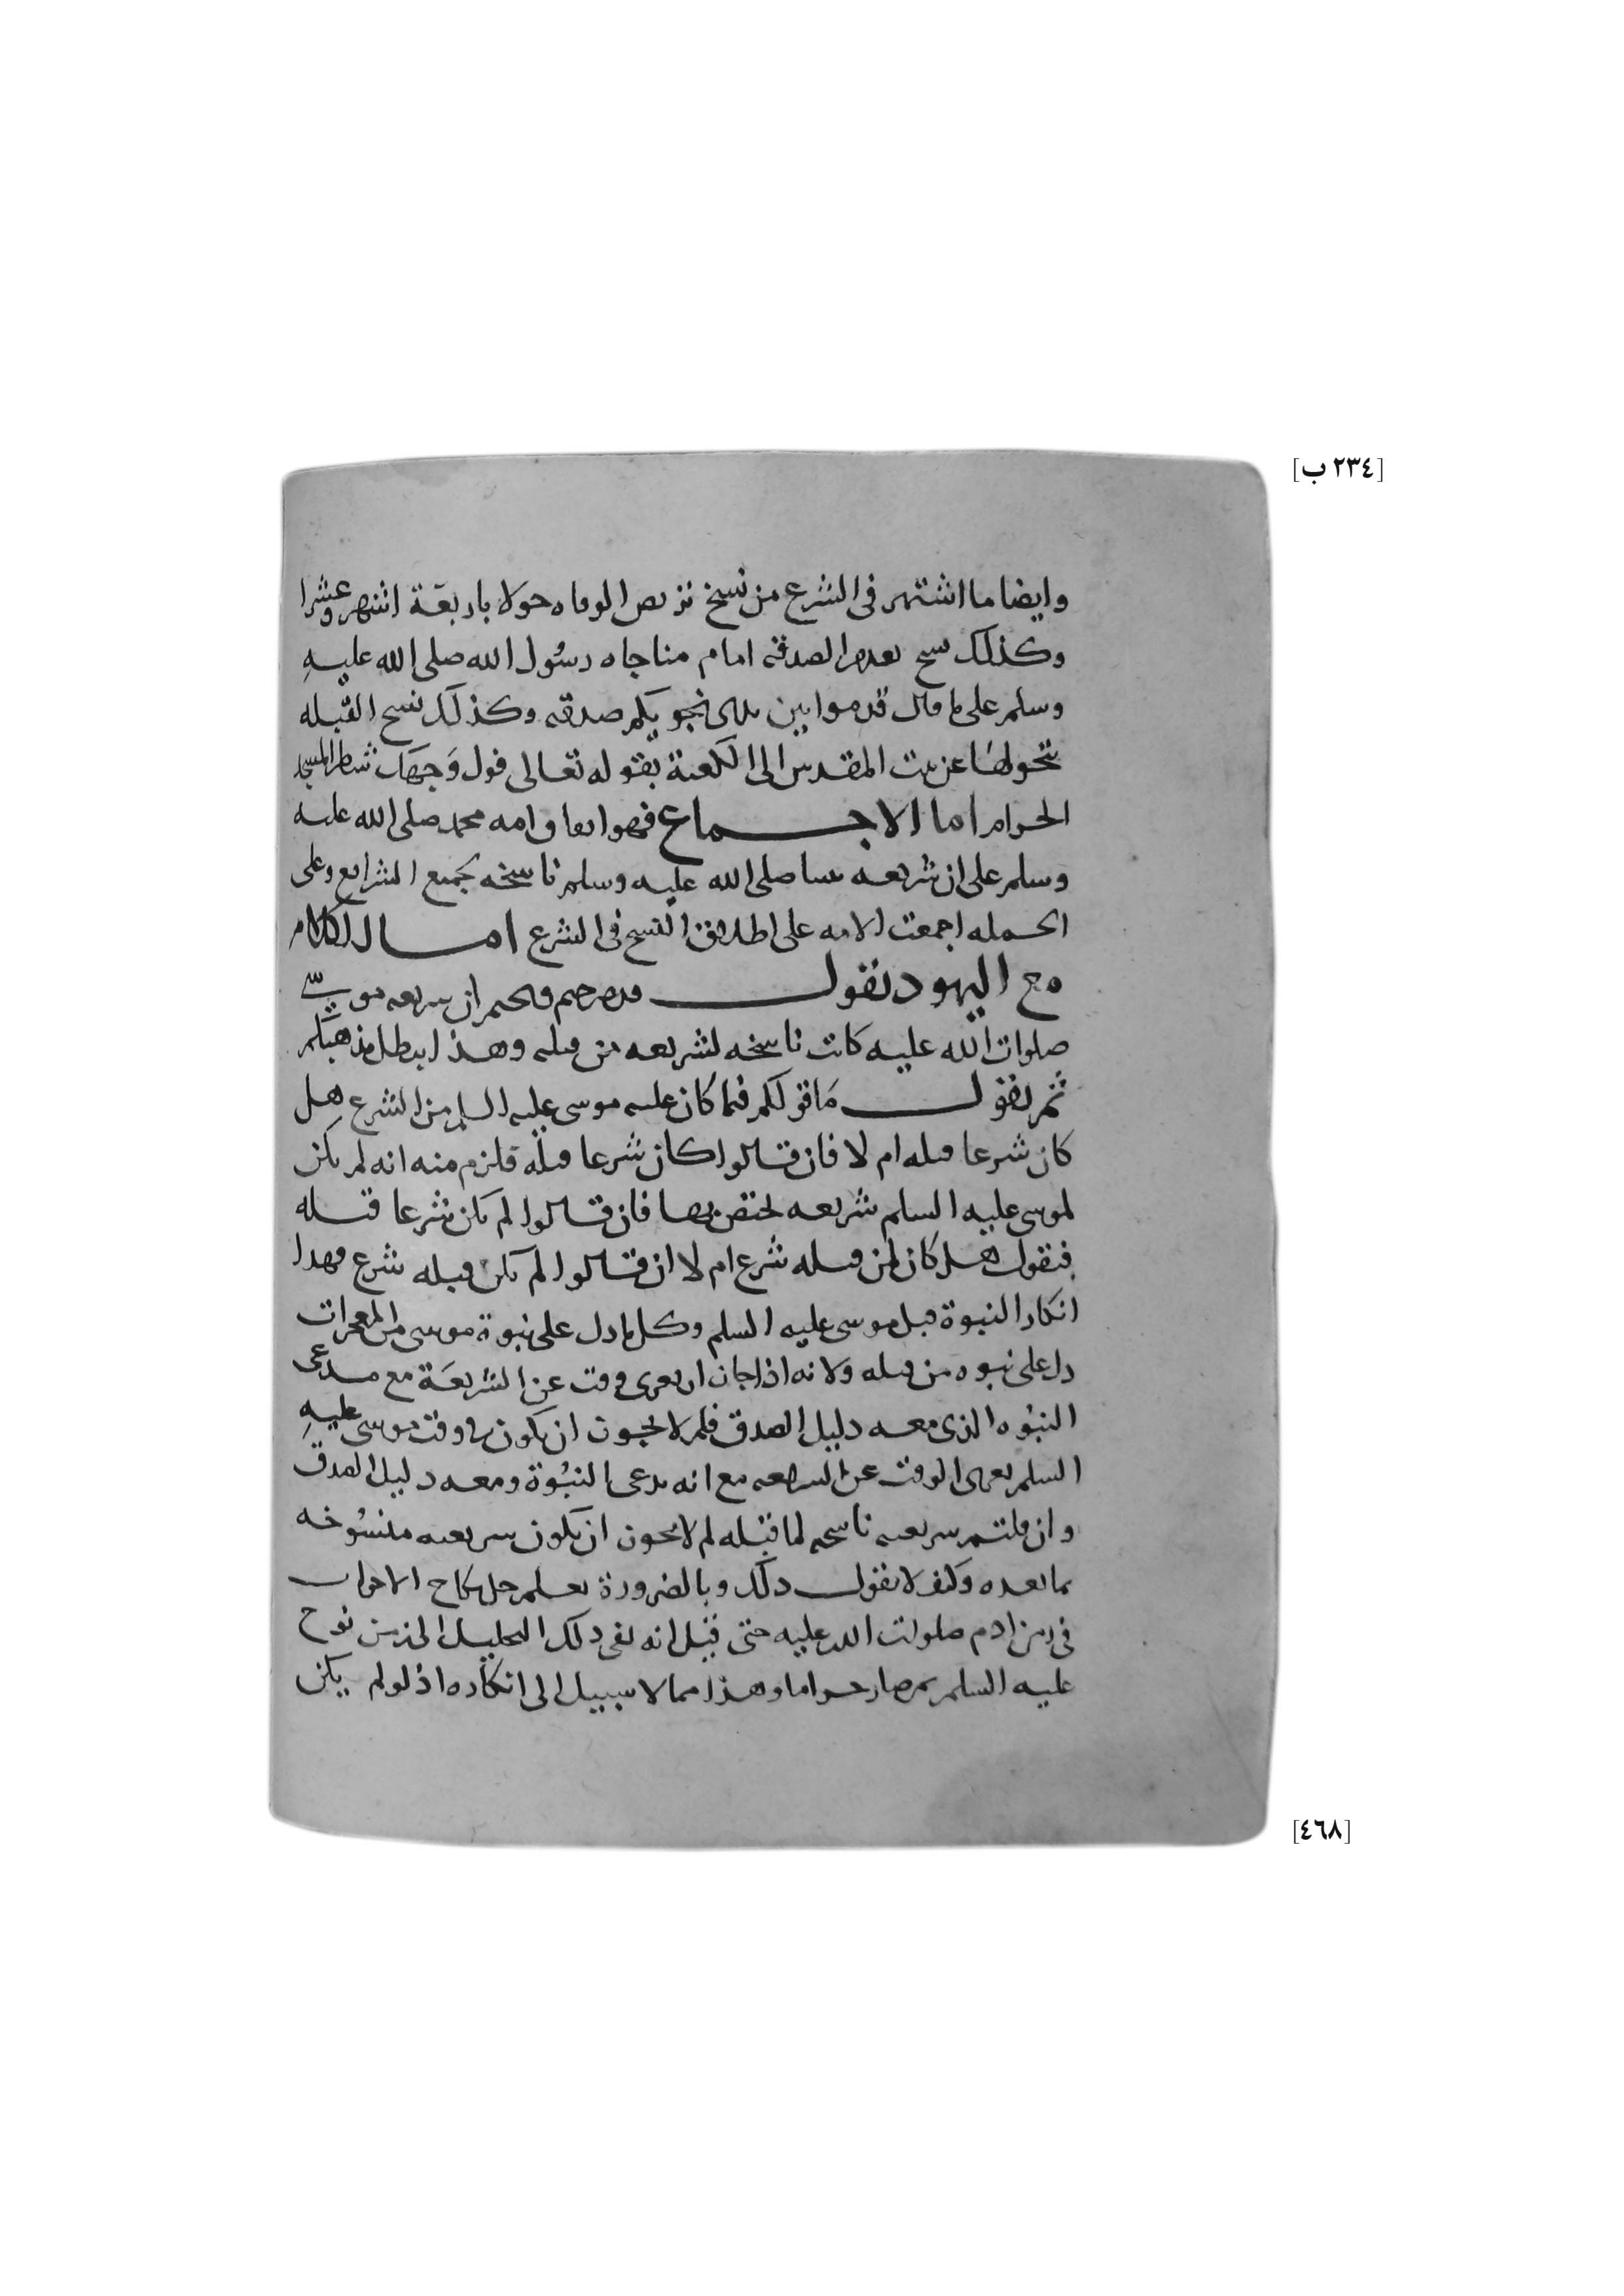 [٢٣٤ ب]
وايضا ما اشتهر فى الشرع من نسخ تربص الوفاه حولا باربعة اشهر وعشرا
وكذلك نسخ تقديم الصدقه امام مناجاه رسول الله صلى الله عليه
وسلم على ما قال قدموا بين يدى نجويكم صدقه وكذلك نسخ القبله
بتحولها عن بيت المقدس الى الكعبة بقوله تعالى فول وجهك شطر المسجد
الحرام اما الاجماع فهو اتفاق امه محمد صلى الله عليه
وسلم على ان شريعه نبينا صلى الله عليه وسلم ناسخه لجميع الشرايع وعلى
الجمله اجمعت الامه على اطلاق النسخ فى الشرع اما الكلام
مع اليهود نقول قد صح منكم ان شريعه موسى
صلوات الله عليه كانت ناسخه لشريعه من قبله وهذا يبطل مذهبكم
ثم نقول ما قولكم فيما كان عليه موسى عليه السلم من الشرع هل
كان شرعا قبله ام لا فان قالوا كان شرعا قبله فلزم منه انه لم يكن
لموسى عليه السلم شريعه يختص بها فان قالوا لم يكن شرعا قبله
فنقول هل كان لمن قبله شرع ام لا ان قالوا لم يكن قبله شرع فهذا
انكار النبوة قبل موسى عليه السلم وكل ما دل على نبوة موسى من المعجزات
دل على نبوه من قبله ولانه اذا جاز ان يعرى وقت عن الشريعة مع مدعى
النبوه الذى معه دليل الصدق فلم لا يجوز ان يكون فى وقت موسى عليه
السلم يعرى الوقت عن الشريعه مع انه يدعى النبوة ومعه دليل الصدق
وان قلتم شريعته ناسخه لما قبله لم لا يجوز ان يكون شريعته منسوخه
بما بعده وكيف لا نقول ذلك وبالضرورة نعلم حل نكاح الاخوات
فى زمن ادم صلوات الله عليه حتى قيل انه بقى ذلك التحليل الى زمن نوح
عليه السلم ثم صار حراما وهذا مما لا سبيل الى انكاره اذ لو لم يكن
[٤٦٨]